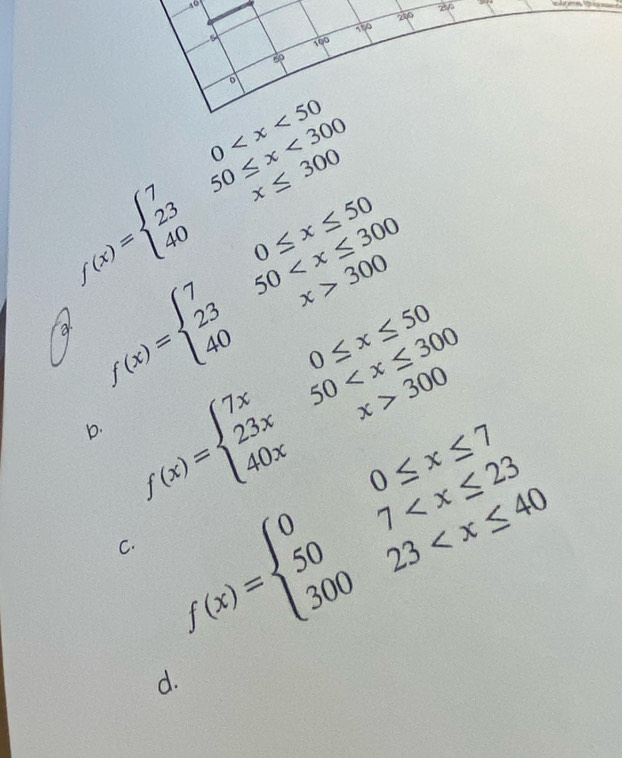 10
5
0 50 100 150 200 250
f(x) = { 7 0 < x < 50
23 50 ≤ x < 300
40 x ≤ 300
a.
f(x) = { 7 0 ≤ x ≤ 50
23 50 < x ≤ 300
40 x > 300
b.
f(x) = { 7x 0 ≤ x ≤ 50
23x 50 < x ≤ 300
40x x > 300
c.
f(x) = { 0 0 ≤ x ≤ 7
50 7 < x ≤ 23
300 23 < x ≤ 40
d.